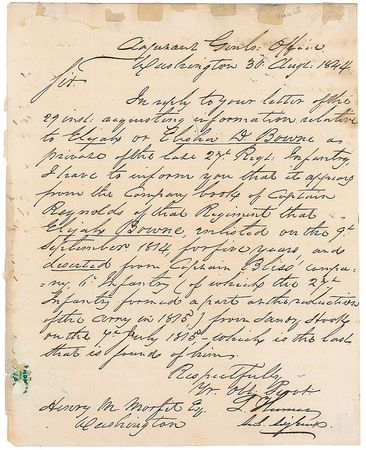 Adjutant Genls: Office
Washington 30 Augt: 1844
Sir
In reply to your letter of the
29 inst: requesting information relative
to Elijah or Elisha D Bowne as
private of the late 27th Regt: Infantry
I have to inform you that it appears
from the Company books of Captain
Reynolds of that Regiment that
Elijah Bowne, enlisted on the 9th
September 1814, for five years, and
deserted from Captain Bliss' compa-
ny, 6th Infantry (of which the 27th
Infantry formed a part at the reduction
of the army in 1815) from Sandy Hook
on the 4th July 1815 - which is the last
that is found of him.
Respectfully
Yr. Obt. Servt
L Thomas
Henry M. Morfit Esq.
Washington